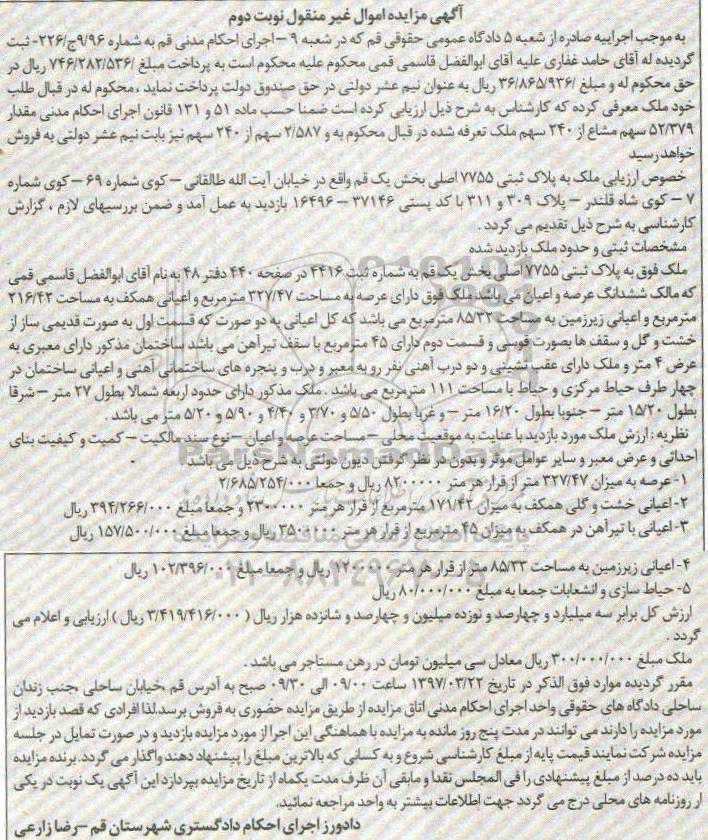 آگهی مزایده اموال غیر منقول نوبت دوم
به موجب اجراییه صادره از شعبه ۵ دادگاه عمومی حقوقی قم که در شعبه ۹ – اجرای احکام مدنی قم به شماره ۹/۹۶ج/۲۲۶- ثبت
گردیده له آقای حامد غفاری علیه آقای ابوالفضل قاسمی قمی محکوم علیه محکوم است به پرداخت مبلغ /۷۴۶/۲۸۲/۵۳۶ ریال در
حق محکوم له و مبلغ /۳۶/۸۶۵/۹۳۶ ریال به عنوان نیم عشر دولتی در حق صندوق دولت پرداخت نماید ، محکوم له در قبال طلب
خود ملک معرفی کرده که کارشناس به شرح ذیل ارزیابی کرده است ضمنا حسب ماده ۵۱ و ۱۳۱ قانون اجرای احکام مدنی مقدار
۵۲/۳۷۹ سهم مشاع از ۲۴۰ سهم ملک تعرفه شده در قبال محکوم به و ۲/۵۸۷ سهم از ۲۴۰ سهم نیز بابت نیم عشر دولتی به فروش
خواهد رسید
خصوص ارزیابی ملک به پلاک ثبتی ۷۷۵۵ اصلی بخش یک قم واقع در خیابان آیت الله طالقانی – کوی شماره ۶۹ – کوی شماره
۷ – کوی شاه قلندر – پلاک ۳۰۹ و ۳۱۱ با کد پستی ۳۷۱۴۶ – ۱۶۴۹۶ بازدید به عمل آمد و ضمن بررسیهای لازم ، گزارش
کارشناسی به شرح ذیل تقدیم می گردد .
مشخصات ثبتی و حدود ملک بازدید شده
ملک فوق به پلاک ثبتی ۷۷۵۵ اصلی بخش یک قم به شماره ثبت ۴۴۱۶ در صفحه ۴۴۰ دفتر ۴۸ به نام آقای ابوالفضل قاسمی قمی
که مالک ششدانگ عرصه و اعیان می باشد ملک فوق دارای عرصه به مساحت ۳۲۷/۴۷ مترمربع و اعیانی همکف به مساحت ۲۱۶/۴۲
مترمربع و اعیانی زیرزمین به مساحت ۸۵/۳۳ مترمربع می باشد که کل اعیانی به دو صورت که قسمت اول به صورت قدیمی ساز از
خشت و گل و سقف ها بصورت قوسی و قسمت دوم دارای ۴۵ مترمربع با سقف تیرآهن می باشد ساختمان مذکور دارای معبری به
عرض ۴ متر و ملک دارای عقب نشینی و دو درب آهنی نفر رو به معبر و درب و پنجره های ساختمانی آهنی و اعیانی ساختمان در
چهار طرف حیاط مرکزی و حیاط با مساحت ۱۱۱ مترمربع می باشد . ملک مذکور دارای حدود اربعه شمالا بطول ۲۷ متر – شرقا
بطول ۱۵/۲۰ متر – جنوبا بطول ۱۶/۲۰ متر – و غربا بطول ۵/۵۰ و ۳/۷۰ و ۴/۴۰ و ۵/۹۰ و ۵/۲۰ متر می باشد .
نظریه : ارزش ملک مورد بازدید با عنایت به موقعیت محلی – مساحت عرصه و اعیان – نوع سند مالکیت – کمیت و کیفیت بنای
احداثی و عرض معبر و سایر عوامل موثر و بدون در نظر گرفتن دیون دولتی به شرح ذیل می باشد
۱- عرصه به میزان ۳۲۷/۴۷ متر از قرار هر متر ۸۲۰۰۰۰۰ ریال و جمعا ۲/۶۸۵/۲۵۴/۰۰۰
۲- اعیانی خشت و گلی همکف به میزان ۱۷۱/۴۲ مترمربع از قرار هر متر ۲۳۰۰۰۰۰ و جمعا مبلغ ۳۹۴/۲۶۶/۰۰۰ ریال
۳- اعیانی با تیرآهن در همکف به میزان ۴۵ مترمربع از قرار هر متر ۳۵۰۰۰۰۰ ریال و جمعا مبلغ ۱۵۷/۵۰۰/۰۰۰ ریال
۴- اعیانی زیرزمین به مساحت ۸۵/۳۳ متر از قرار هر متر ۱۲۰۰۰۰۰ ریال و جمعا مبلغ ۱۰۲/۳۹۶/۰۰۰ ریال
۵- حیاط سازی و انشعابات جمعا به مبلغ ۸۰/۰۰۰/۰۰۰ ریال
ارزش کل برابر سه میلیارد و چهارصد و نوزده میلیون و چهارصد و شانزده هزار ریال ( ۳/۴۱۹/۴۱۶/۰۰۰ ریال ) ارزیابی و اعلام می
گردد .
ملک مبلغ ۳۰۰/۰۰۰/۰۰۰ ریال معادل سی میلیون تومان در رهن مستاجر می باشد .
مقرر گردیده موارد فوق الذکر در تاریخ ۱۳۹۷/۰۳/۲۲ ساعت ۰۹/۰۰ الی ۰۹/۳۰ صبح به آدرس قم ،خیابان ساحلی ،جنب زندان
ساحلی دادگاه های حقوقی واحد اجرای احکام مدنی اتاق مزایده از طریق مزایده حضوری به فروش برسد.لذا افرادی که قصد بازدید از
مورد مزایده را دارند می توانند در مدت پنج روز مانده به مزایده با هماهنگی این اجرا از مورد مزایده بازدید و در صورت تمایل در جلسه
مزایده شرکت نمایند قیمت پایه از مبلغ کارشناسی شروع و به کسانی که بالاترین مبلغ را پیشنهاد دهند واگذار می گردد. برنده مزایده
باید ده درصد از مبلغ پیشنهادی را فی المجلس نقدا و مابقی آن ظرف مدت یکماه از تاریخ مزایده بپردازد این آگهی یک نوبت در یکی
از روزنامه های محلی درج می گردد جهت اطلاعات بیشتر به واحد مراجعه نمائید.
دادورز اجرای احکام دادگستری شهرستان قم – رضا زارعی
ParsNamadData